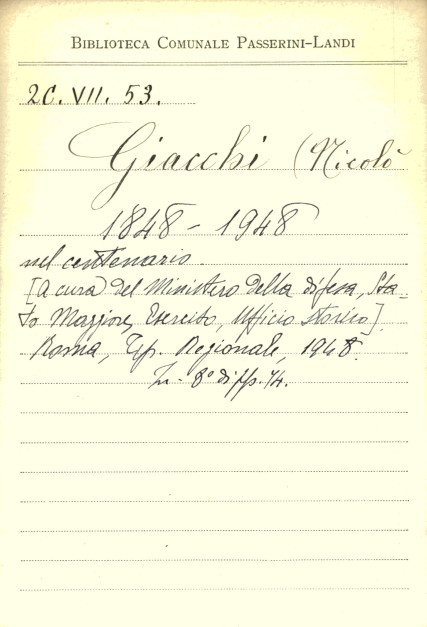 BIBLIOTECA COMUNALE PASSERINI-LANDI
2C. VII. 53.
Giacchi (Nicolò
1848 - 1948
nel centenario.
[A cura del Ministero della difesa, Sta-
to Maggiore, Esercito, Ufficio Storico].
Roma, Tip. Regionale, 1948.
8° di pp. 74.